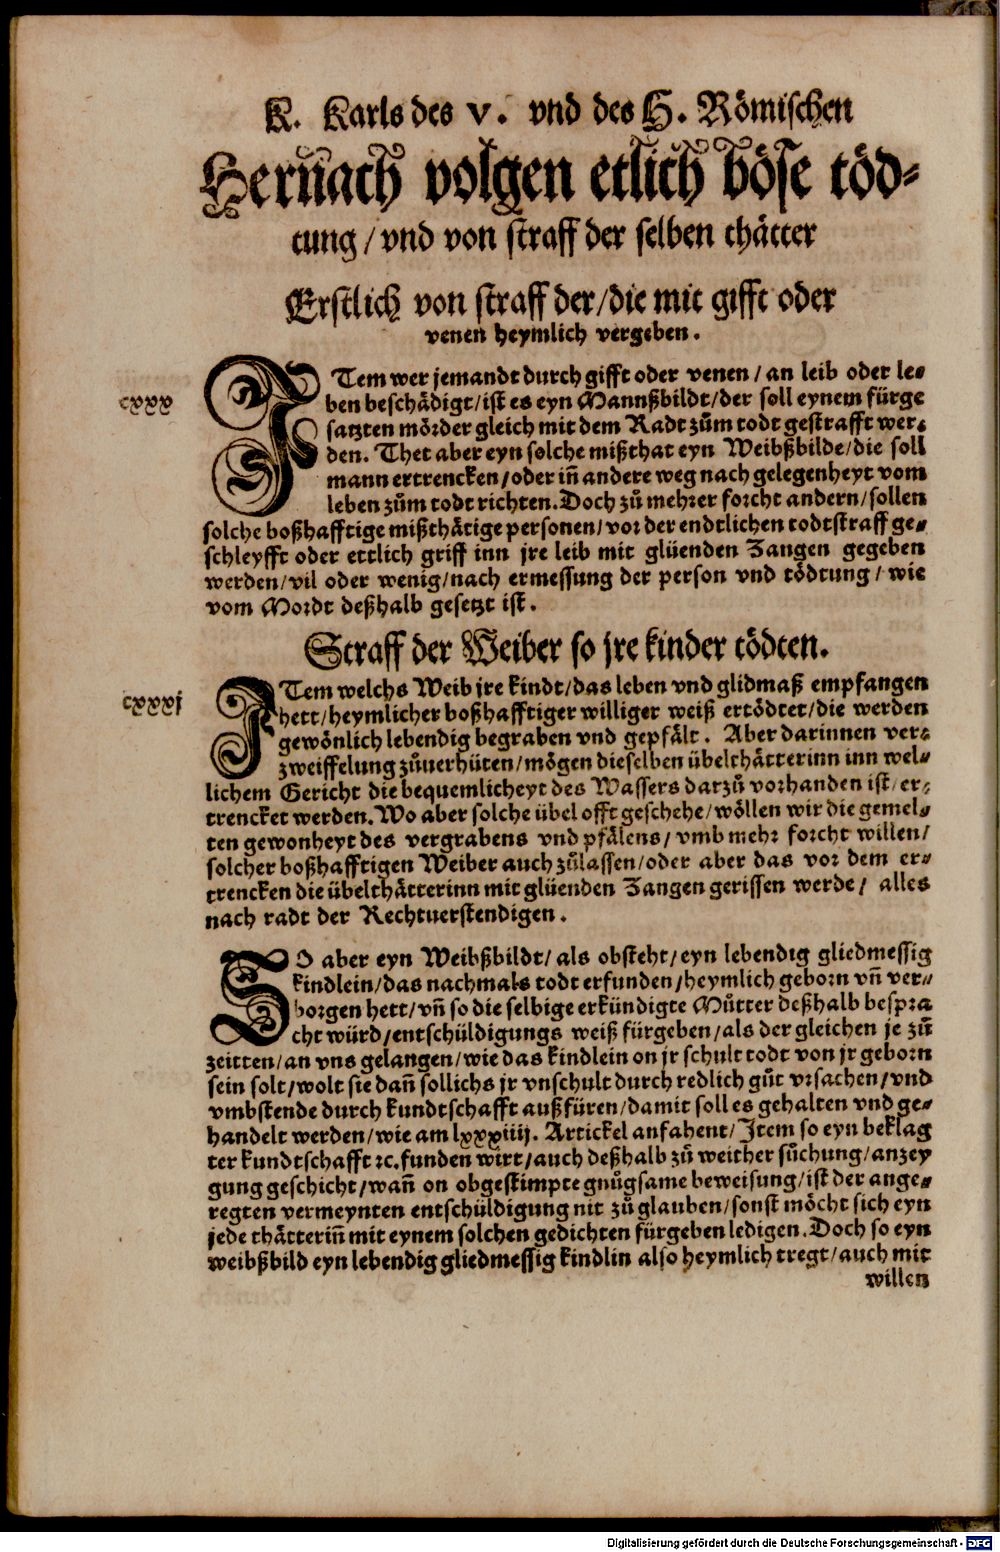 K. Karls des V. vnd des H. Römischen
Hernach volgen etlich böse töd⸗
tung / vnd von straff der selben thätter
Erstlich von straff der / die mit gifft oder
venen heymlich vergeben.
cxxx
ITem wer jemandt durch gifft oder venen / an leib oder le⸗
ben beschädigt / ist es eyn Mannßbildt / der soll eynem fürge
satzten mörder gleich mit dem Radt zům todt gestrafft wer⸗
den. Thet aber eyn solche mißthat eyn Weibßbilde / die soll
mann ertrencken / oder iñ andere weg nach gelegenheyt vom
leben zům todt richten. Doch zů mehrer forcht andern / sollen
solche boßhafftige mißthätige personen / vor der endtlichen todtstraff ge⸗
schleyfft oder ettlich griff inn jre leib mit glüenden Zangen gegeben
werden / vil oder wenig / nach ermessung der person vnd tödtung / wie
vom Mordt deßhalb gesetzt ist.
Straff der Weiber so jre kinder tödten.
cxxxj
ITem welchs Weib jre kindt / das leben vnd glidmaß empfangen
hett / heymlicher boßhafftiger williger weiß ertödtet / die werden
gewönlich lebendig begraben vnd gepfält. Aber darinnen ver⸗
zweiffelung zůuerhüten / mögen dieselben übelthätterinn inn wel⸗
lichem Gericht die bequemlicheyt des Wassers darzů vorhanden ist / er⸗
trencket werden. Wo aber solche übel offt geschehe / wöllen wir die gemel⸗
ten gewonheyt des vergrabens vnd pfälens / vmb mehr forcht willen /
solcher boßhafftigen Weiber auch zůlassen / oder aber das vor dem er⸗
trencken die übelthätterinn mit glüenden Zangen gerissen werde / alles
nach radt der Rechtuerstendigen.
SO aber eyn Weibßbildt / als obsteht / eyn lebendig gliedmessig
kindlein / das nachmals todt erfunden / heymlich geborn vñ ver⸗
borgen hett / vñ so die selbige erkündigte Můtter deßhalb bespra
cht würd / entschüldigungs weiß fürgeben / als der gleichen je zů
zeitten / an vns gelangen / wie das kindlein on jr schult todt von jr geborn
sein solt / wolt sie dañ sollichs jr vnschult durch redlich gůt vrsachen / vnd
vmbstende durch kundtschafft außfüren / damit soll es gehalten vnd ge⸗
handelt werden / wie am lxxxiiij. Artickel anfahent / Item so eyn beklag
ter kundtschafft ꝛc. funden wirt / auch deßhalb zů weither sůchung / anzey
gung geschicht / wañ on obgestimpte gnůgsame beweisung / ist der ange⸗
regten vermeynten entschüldigung nit zů glauben / sonst möcht sich eyn
jede thätteriñ mit eynem solchen gedichten fürgeben ledigen. Doch so eyn
weibßbild eyn lebendig gliedmessig kindlin also heymlich tregt / auch mit
willen
Digitalisierung gefördert durch die Deutsche Forschungsgemeinschaft - DFG